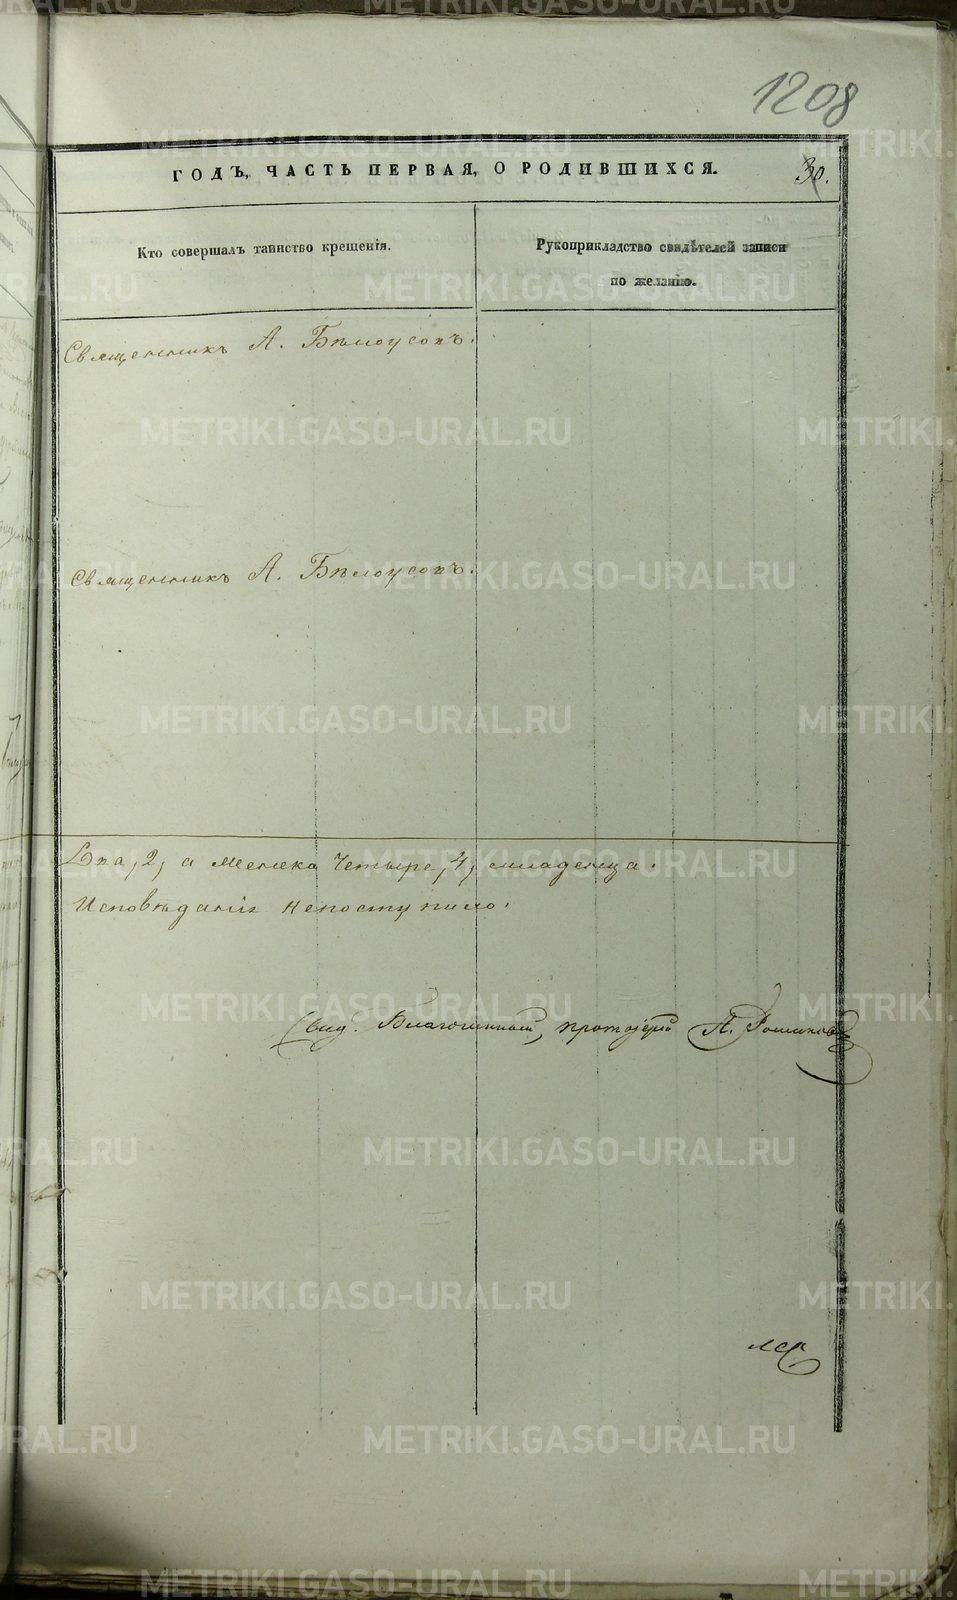 1208
ГОДЪ, ЧАСТЬ ПЕРВАЯ, О РОДИВШИХСЯ. 30.
Кто совершалъ таинство крещенія.
Рукоприкладство свидѣтелей записи
по желанію.
Священникъ А. Бѣлоусовъ.
Священникъ А. Бѣлоусовъ.
Два, 2, а женска четыре, 4, младенца.
Исповѣданіе непоступило.
Свид. Благочинный, протоіерей А.
METRIKI.GASO-URAL.RU